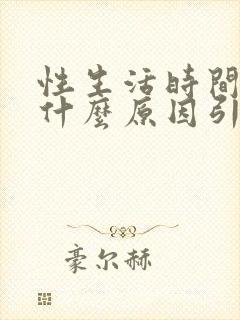 性生活時間
什麼原因引
豪尔赫